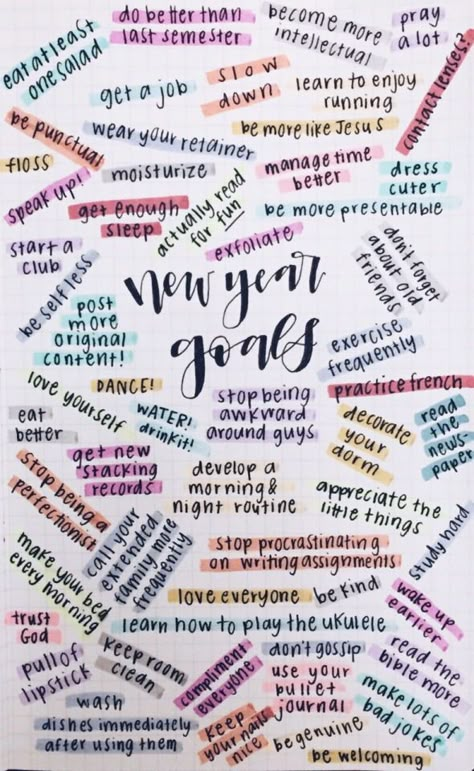 do better than
last semester
become more
intellectual
pray
a lot
eat at least
one salad
get a job
slow
down
learn to enjoy
running
contact lenses?
be punctual
wear your retainer
be more like Jesus
floss
moisturize
manage time
better
dress
cuter
speak up!
get enough
sleep
actually read
for fun
be more presentable
start a
club
exfoliate
don't forget
about old
friends
be selfless
new year
goals
post
more
original
content!
exercise
frequently
love yourself
DANCE!
practice french
eat
better
WATER!
drink it!
stop being
awkward
around guys
decorate
your
dorm
read
the
news
paper
get new
stacking
records
stop being a
perfectionist
develop a
morning &
night routine
appreciate the
little things
call your
extended
family more
frequently
study hard
stop procrastinating
on writing assignments
make your bed
every morning
love everyone
be kind
wake up
earlier
trust
God
learn how to play the ukulele
pull of
lipstick
keep room
clean
compliment
everyone
don't gossip
read the
bible more
use your
bullet
journal
make lots of
bad jokes
wash
dishes immediately
after using them
keep
your nails
nice
be genuine
be welcoming